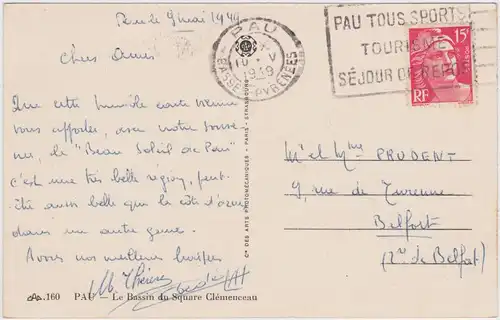 Pau le 9 mai 1949
Chers Amis
Que cette humble carte vienne
vous apporter, avec notre souve-
nir, le "Beau Soleil de Pau"
c'est une très belle région, peut-
être aussi belle que la côte d'azur
dans un autre genre.
Avons nos meilleurs
160 PAU - Le Bassin du Square Clémenceau
Cie DES ARTS PHOTOMÉCANIQUES - PARIS - STRASBOURG
PAU
BASSES-PYRÉNÉES
PAU TOUS SPORTS
TOURISME
SÉJOUR DE REPOS
15F
RF
M' et Mme PRUDENT
9, rue de Turenne
Belfort
(Tre de Belfort)